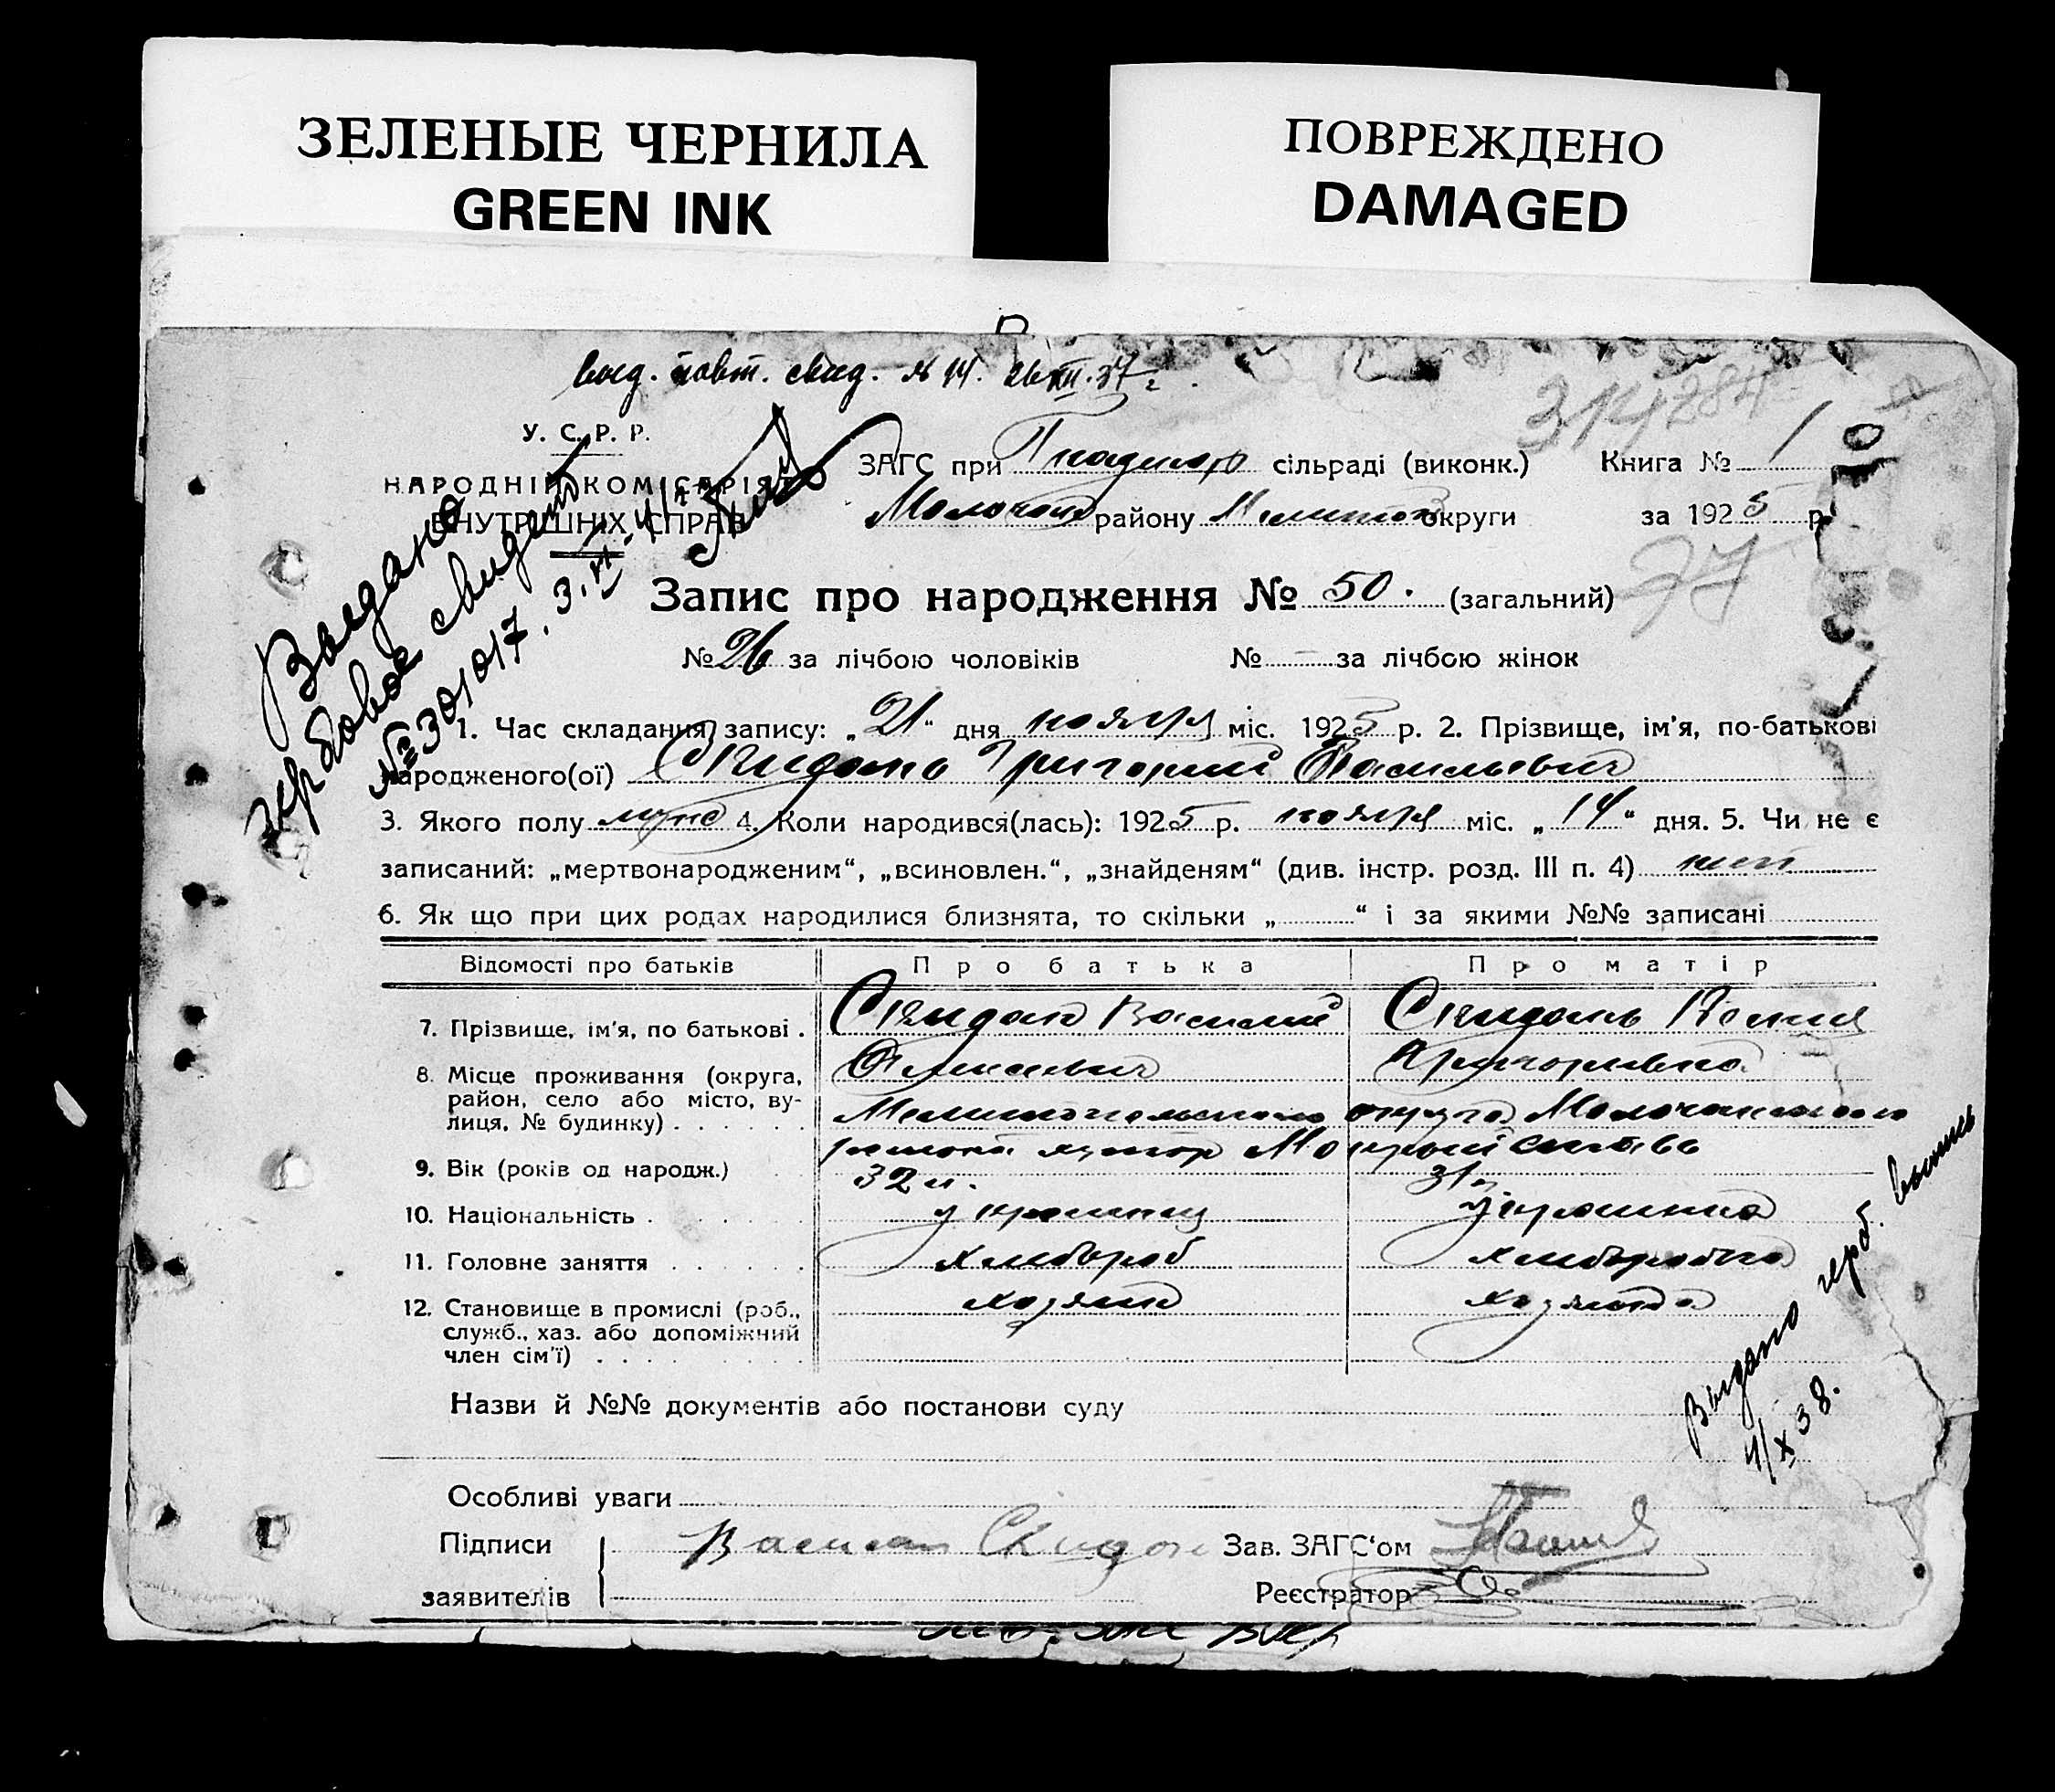 ЗЕЛЕНЫЕ ЧЕРНИЛА
GREEN INK
ПОВРЕЖДЕНО
DAMAGED
выд. повт. свид. № 14.
314284
У. С. Р. Р.
НАРОДНІЙ КОМІСАРІЯТ
ВНУТРІШНІХ СПРАВ
Выдано
гербовое свидет
№ 301017. 3.
ЗАГС при сільраді (виконк.) Книга № 1
Молочан району Мелитоп округи за 1925 р.
77
Запис про народження № 50. (загальний)
№ 26 за лічбою чоловіків № — за лічбою жінок
1. Час складання запису: „21“ дня ноября міс. 1925 р. 2. Прізвище, ім'я, по-батькові
народженого(ої) Скидань Григорий Васильевич
3. Якого полу муж 4. Коли народився(лась): 1925 р. ноября міс. „14“ дня. 5. Чи не є
записаний: „мертвонародженим“, „всиновлен.“, „знайденям“ (див. інстр. розд. III п. 4) нет
6. Як що при цих родах народилися близнята, то скільки „ “ і за якими №№ записані
Відомості про батьків Про батька Про матір
7. Прізвище, ім'я, по батькові . Скидан Василий Скидань
Григорьевна
8. Місце проживання (округа,
район, село або місто, ву-
лиця, № будинку) . . . . . .
Мелитопольского округа Молочанского
района хутор
9. Вік (років од народж.) 32 л. 31
10. Національність . украинец украинка
11. Головне заняття . . . . . . хлебороб хлеборобка
12. Становище в промислі (роб., хозяин хозяйка
служб., хаз. або допоміжний
член сім'ї) . . . .
Выдано герб. выпись
4/X 38.
Назви й №№ документів або постанови суду
Особливі уваги
Підписи Василий Скидан Зав. ЗАГС'ом
заявителів Реєстратор